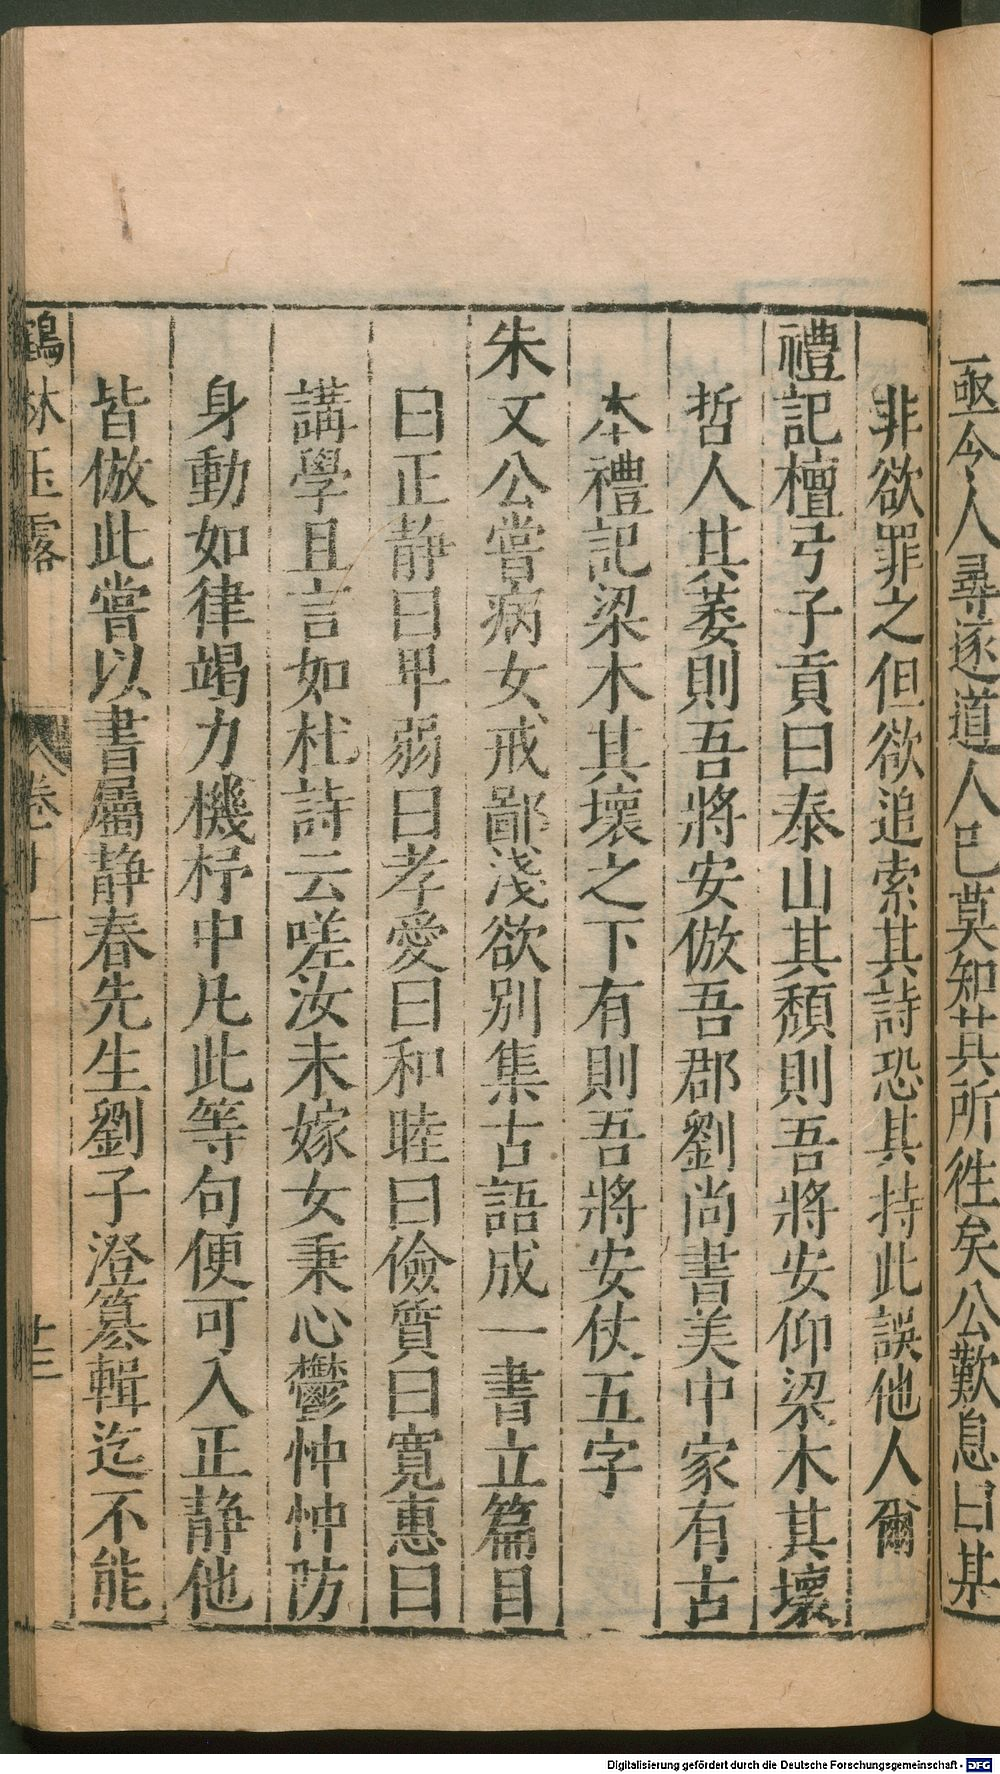 亟令人尋逐道人已莫知其所徃矣公歎息曰某
非欲罪之但欲追索其詩恐其持此誤他人爾
禮記檀弓子貢曰泰山其頽則吾將安仰梁木其壞
哲人其萎則吾將安倣吾郡劉尚書美中家有古
本禮記梁木其壞之下有則吾將安仗五字
朱文公嘗病女戒鄙淺欲别集古語成一書立篇目
曰正静曰甲弱曰孝愛曰和睦曰儉質曰寛惠曰
講學且言如杜詩云嗟汝未嫁女秉心鬱忡忡防
身動如律竭力機杼中凡此等句便可入正静他
皆倣此嘗以書屬静春先生劉子澄篡輯迄不能
鶴林玉露 卷十一 十三
Digitalisierung gefördert durch die Deutsche Forschungsgemeinschaft - DFG